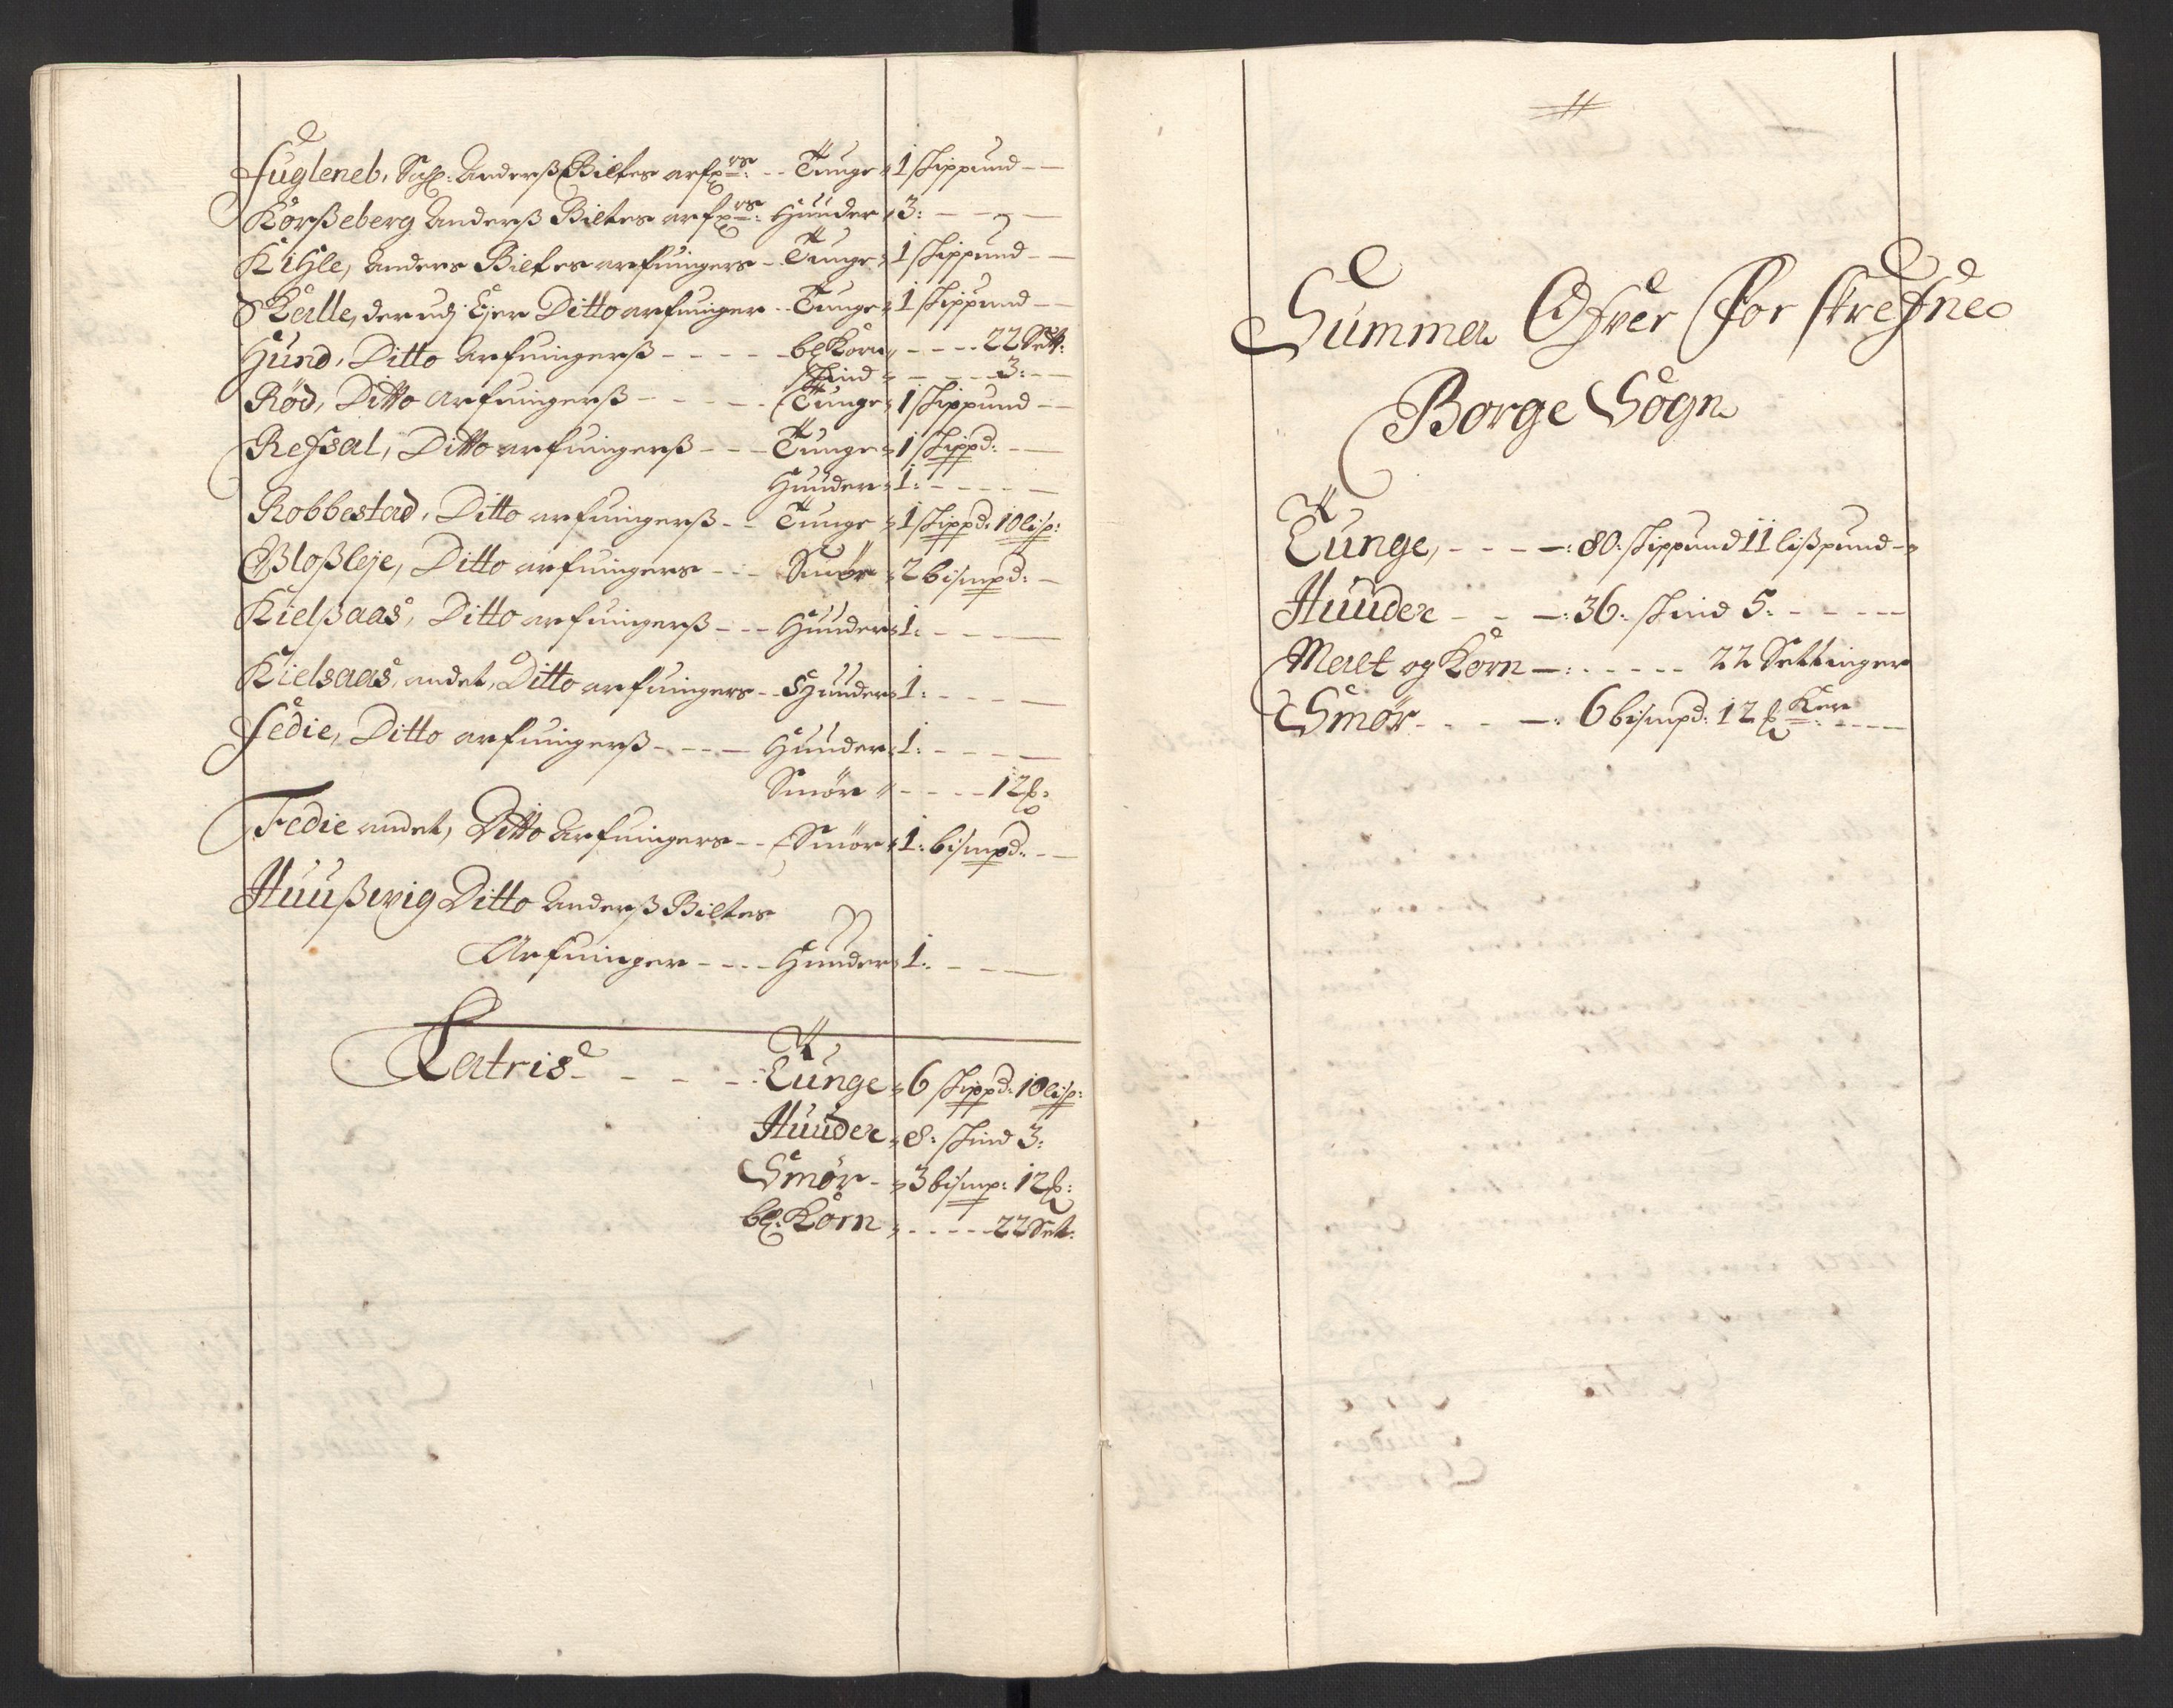 Fugleneb, Sahl: Anderß Bilkes arf: rs: -- Tunge 1 skippund --
Korßeberg Anderß Biltes arf: rs: Huuder 3: - - -
Kihle, Anders Bielkes arfuingers - Tunge 1 skippund --
Skalle, der udj Ejer Ditto arfuinger -- Tunge 1 skippund --
Hund, Ditto Arfuingerß - - - - - bl Korn - - - - 22 Sett:
skind - - - - 3: - -
Röd, Ditto Arfuingerß - - - - - Tunge 1 skippund --
Refsal, Ditto arfuingerß - - - Tunge 1 skippd: - -
Huuder 1: - - - -
Robbestad, Ditto arfuingerß -- Tunge 1 skippd: 10 lisp:
Bloßleje, Ditto arfuingers - - - Smör 2 bismpd: -
Kielßaas, Ditto arfuingerß - - - Huuder 1: - - - -
Kielsaas, andet, Ditto arfuingers -- Huuder 1: - - - -
Fedie, Ditto arfuingerß - - - - Huuder 1: - - - -
Smör - - - - 12
Fedie andet, Ditto Arfuingers -- Smör 1: bismpd: - -
Huußwig Ditto Anderß Biltes
Arfuinger - - - - Huuder 1: - - - -
Latris - - - - : Tunge 6 skippd: 10 lisp:
Huuder 8: skind 3:
Smör - 3 bismp: 12
bl: Korn - - - - - 22 Set:
Summa Ofver For skrefne
Borge Sogn
Tunge, - - - -: 80: skippund 11 lißpund -
Huuder - - -: 36: skind 5: - - - -
Malt og Korn -: - - - - - 22 Settinger
Smör - - - -: 6 bismpd: 12 - - - -